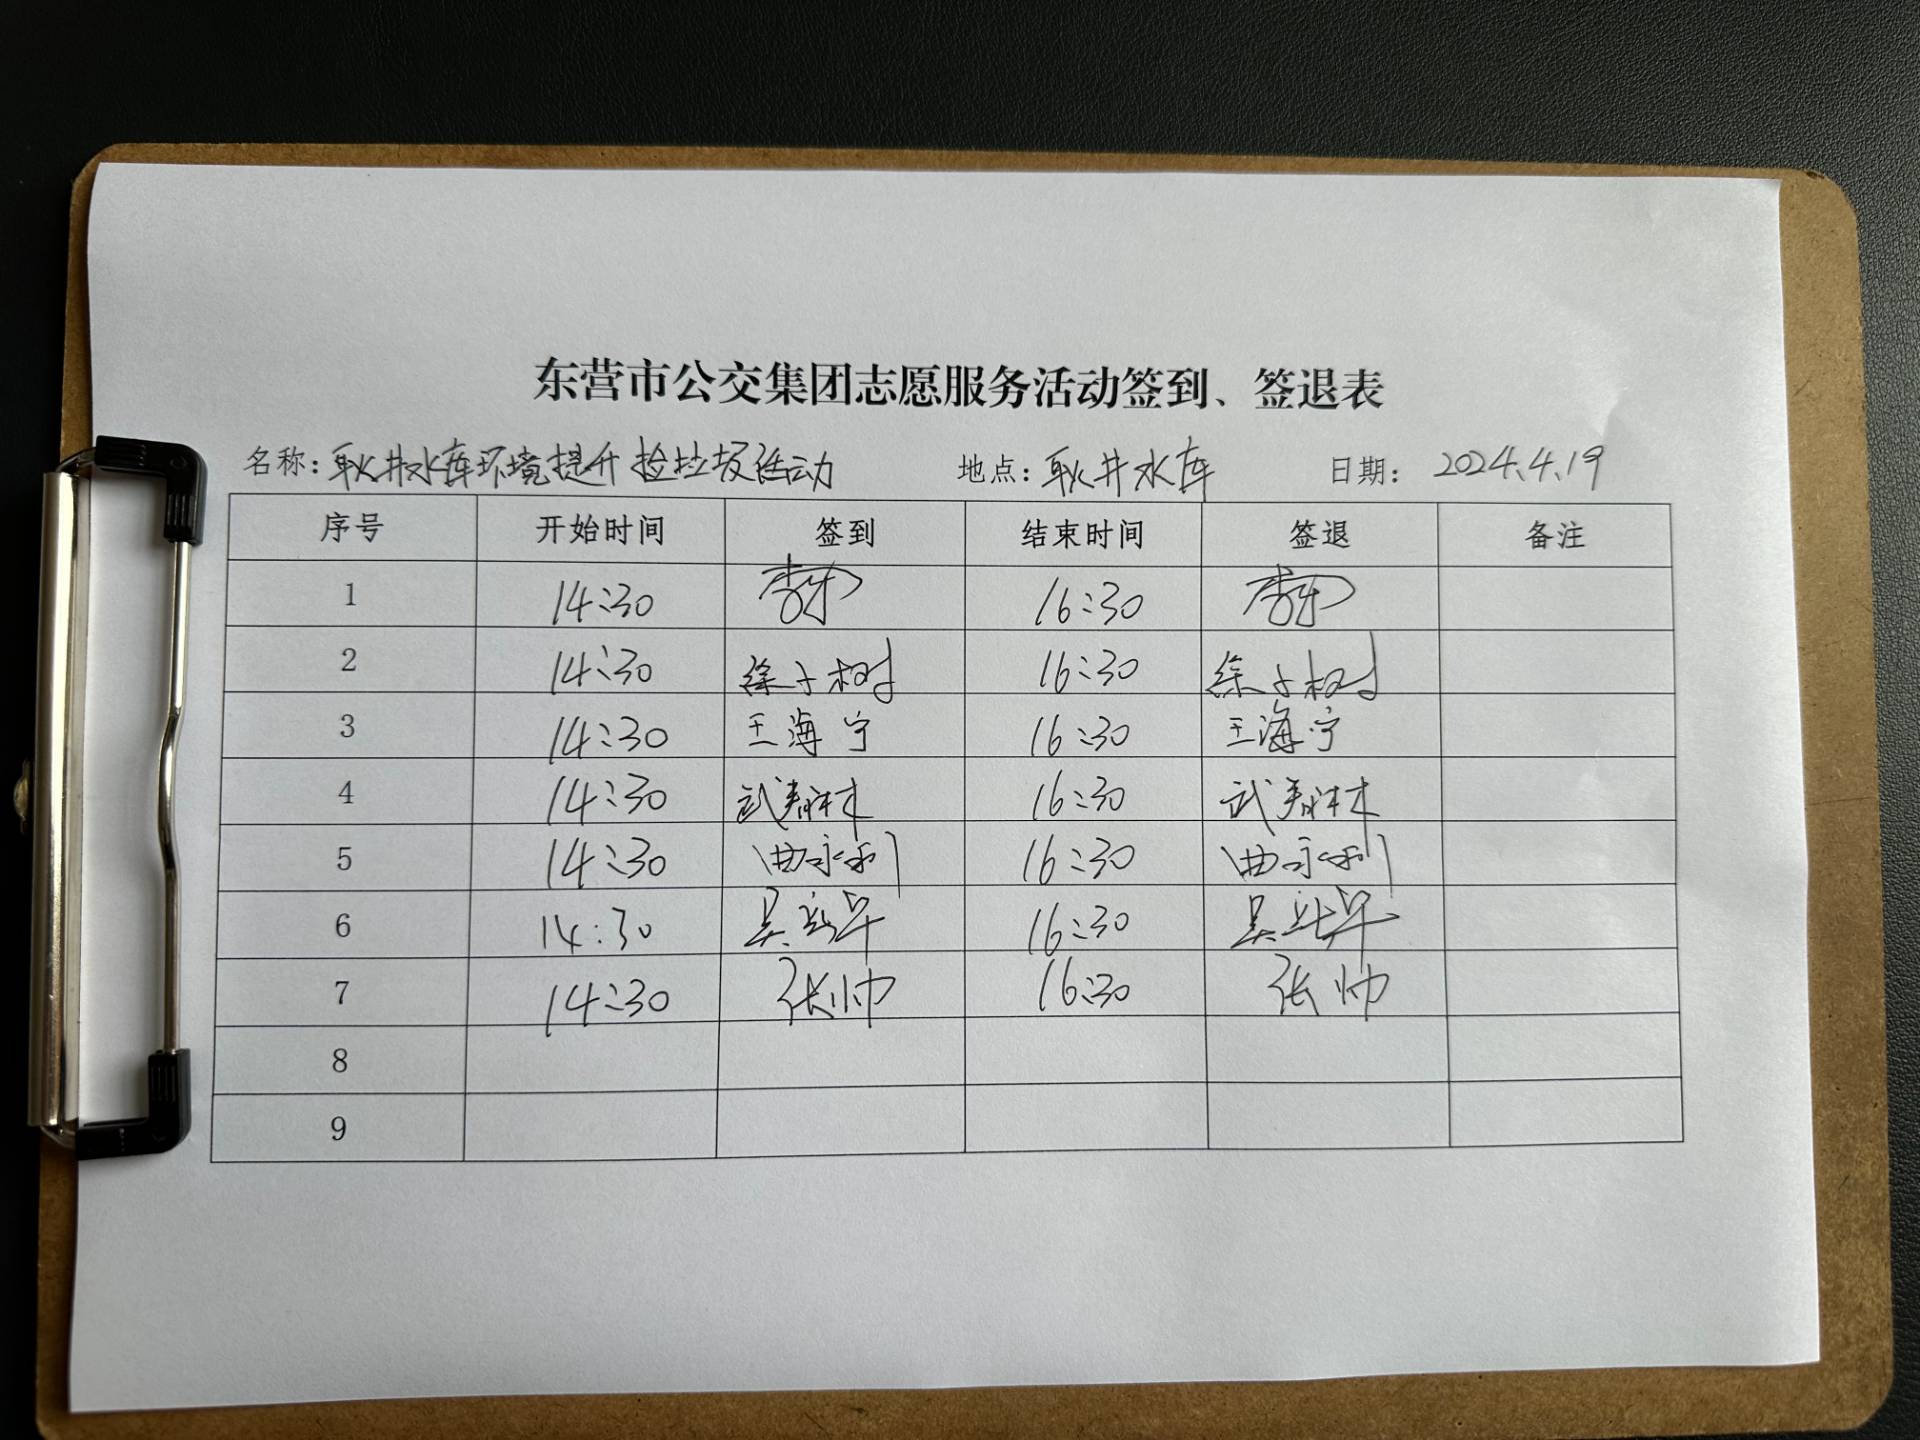 东营市公交集团志愿服务活动签到、签退表
名称：耿井水库环境提升捡垃圾活动 地点：耿井水库 日期：2024.4.19
序号 开始时间 签到 结束时间 签退 备注
1 14:30 16:30
2 14:30 徐子树 16:30 徐子树
3 14:30 王海宁 16:30 王海宁
4 14:30 武春林 16:30 武春林
5 14:30 曲永利 16:30 曲永利
6 14:30 16:30
7 14:30 张帅 16:30 张帅
8
9